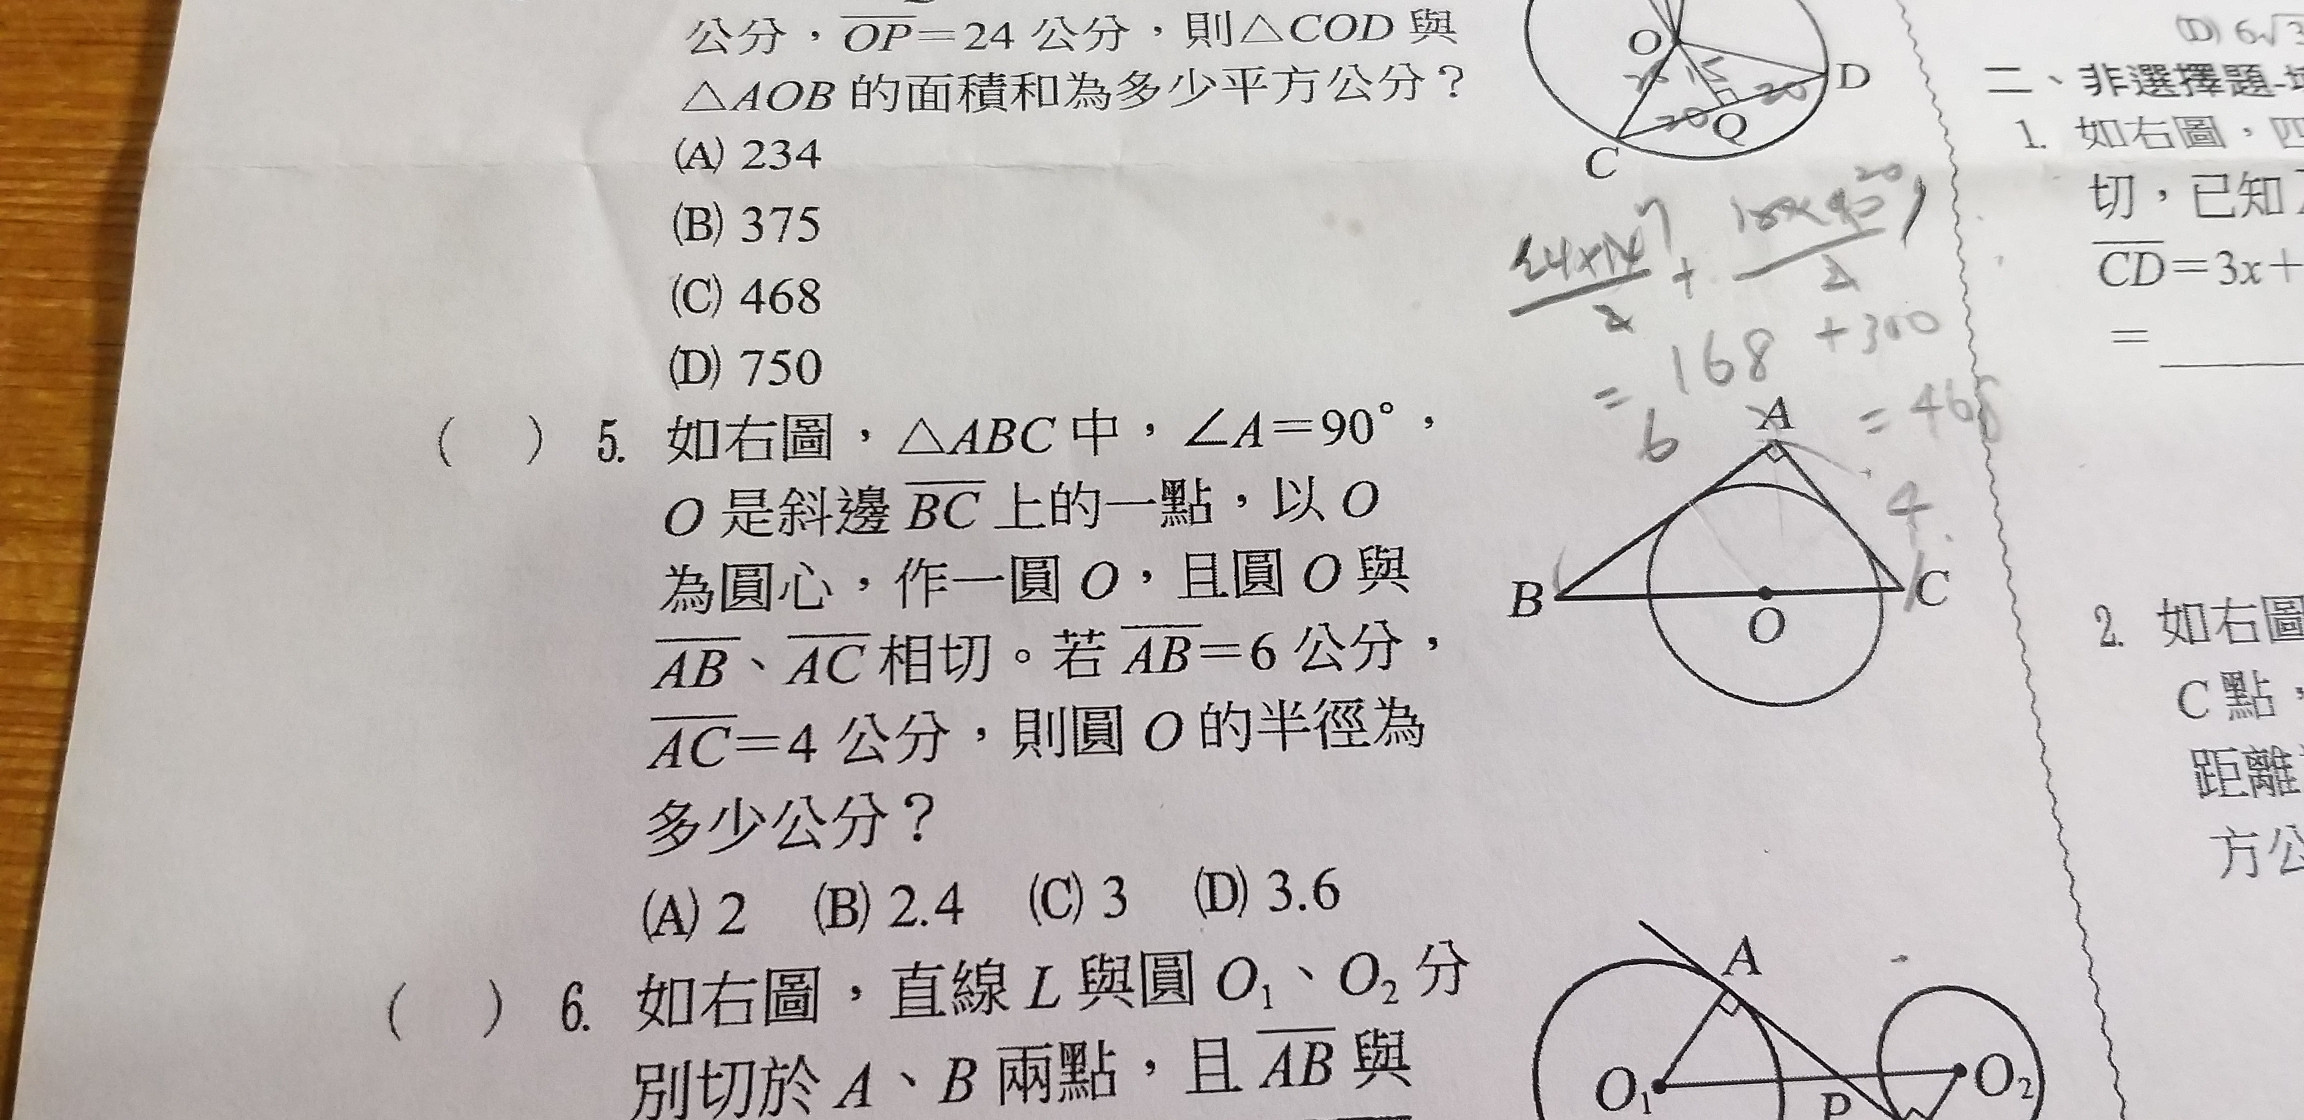 公分，OP=24 公分，則△COD 與
△AOB 的面積和為多少平方公分？
(A) 234
(B) 375
(C) 468
(D) 750
O
D
Q
C
15
20
20
168 +300
= 468
(　) 5. 如右圖，△ABC 中，∠A=90°，
O 是斜邊 BC 上的一點，以 O
為圓心，作一圓 O，且圓 O 與
AB、AC 相切。若 AB=6 公分，
AC=4 公分，則圓 O 的半徑為
多少公分？
(A) 2 (B) 2.4 (C) 3 (D) 3.6
A
6
4
B
O
C
(　) 6. 如右圖，直線 L 與圓 O₁、O₂ 分
別切於 A、B 兩點，且 AB 與
A
O₁
P
O₂
(D) 6√3
二、非選擇題-
1. 如右圖，四
切，已知
CD=3x+
=
2. 如右圖
C 點，
距離
方公